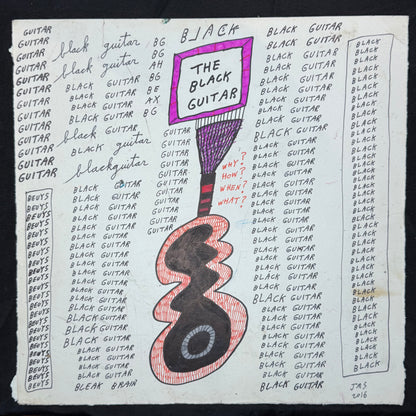 GUITAR
GUITAR
GUITAR
GUITAR
GUITAR
GUITAR
GUITAR
GUITAR
GUITAR
GUITAR
GUITAR
GUITAR
BEUYS
BEUYS
BEUYS
BEUYS
BEUYS
BEUYS
BEUYS
BEUYS
BEUYS
BEUYS
BEUYS
BEUYS
BEUYS
BEUYS
BEUYS
BEUYS
BEUYS
BEUYS
BEUYS
BEUYS
black guitar
black guitar
BLACK GUITAR
BLACK GUITAR
black GUITAR
blackguitar
BLACK GUITAR
BLACK GUITAR
BLACK GUITAR
BLACK GUITAR
BLACK GUITAR
BLACK GUITAR
BLACK GUITAR
BLACK GUITAR
BLACK GUITAR
BLACK GUITAR
BLACK GUITAR
BLACK GUITAR
BLACK GUITAR
BLACK GUITAR
BLACK GUITAR
BLACK GUITAR
BLACK GUITAR
BLEAK BRAIN
BG
BG
AH
BG
BE
AX
BG
GUITAR
GUITAR
GUITAR
GUITAR
GUITAR
GUITAR
GUITAR
GUITAR
GUITAR
GUITAR
BLACK
THE
BLACK
GUITAR
WHY?
HOW?
WHEN?
WHAT?
BLACK GUITAR
BLACK GUITAR
BLACK GUITAR
BLACK GUITAR
BLACK GUITAR
BLACK GUITAR
BLACK GUITAR
BLACK GUITAR
BLACK GUITAR
BLACK GUITAR
BLACK GUITAR
BLACK GUITAR
BLACK GUITAR
BLACK GUITAR
BLACK GUITAR
BLACK GUITAR
BLACK GUITAR
BLACK GUITAR
BLACK GUITAR
BLACK GUITAR
BLACK GUITAR
BLACK GUITAR
BLACK GUITAR
BLACK GUITAR
BLACK GUITAR
BLACK GUITAR
BLACK GUITAR
BLACK GUITAR
BLACK GUITAR
BLACK GUITAR
BLACK GUITAR
BLACK GUITAR
BLACK
BLACK
BLACK
BLACK
BLACK
BLACK
BLACK
BLACK
BLACK
BLACK
BLACK
BLACK
BLACK
BLACK
BLACK
BLACK
BLACK
BLACK
BLACK
BLACK
BLACK
BLACK
BLACK
BLACK
BLACK
BLACK
BLACK
BLACK
BLACK
BLACK
BLACK
BLACK
JAS
2016